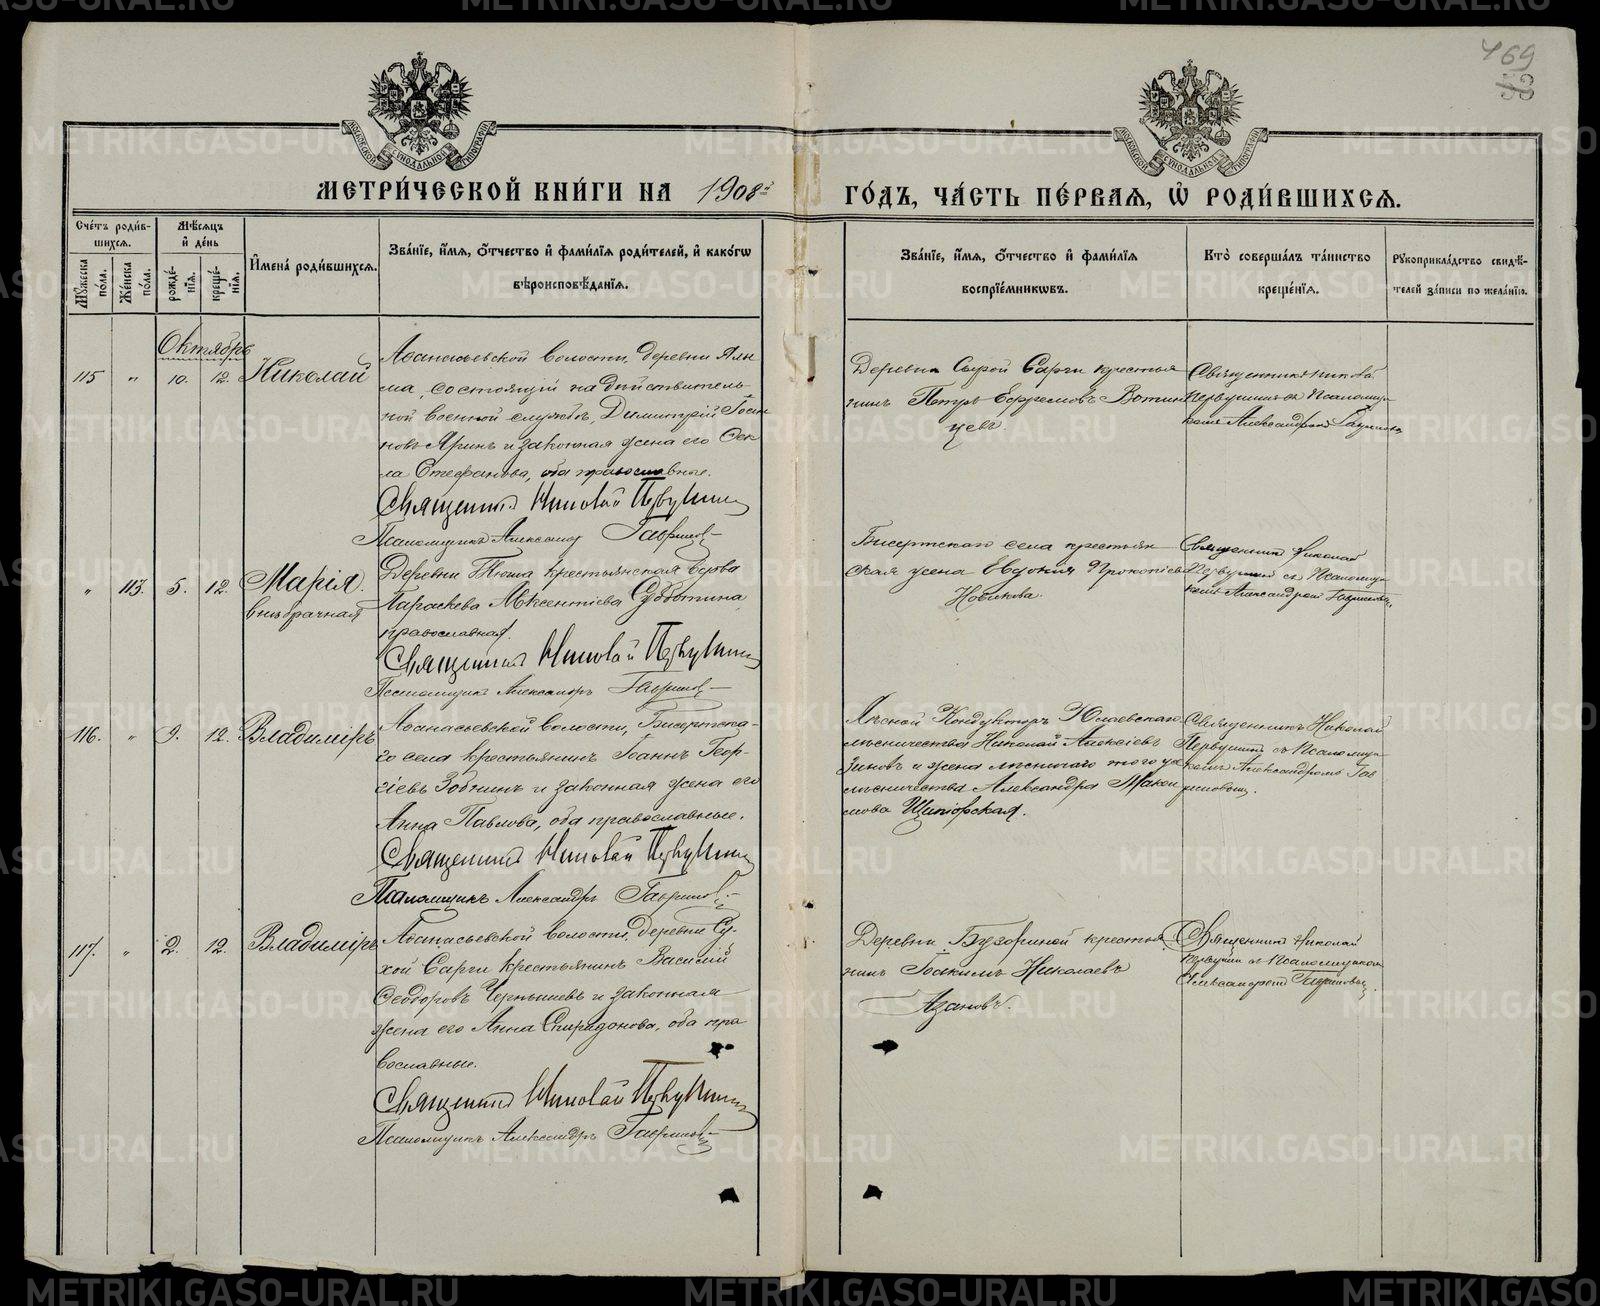 469
МЕТРИЧЕСКОЙ КНИГИ НА 1908й ГОДЪ, ЧАСТЬ ПЕРВАЯ, Ѡ РОДИВШИХСЯ.
Счетъ родив-
шихся.
Мужеска пола.
Женска пола.
Мѣсяцъ и день
рожде-
нія.
креще-
нія.
Имена родившихся.
Званіе, имя, отчество и фамилія родителей, и какогѡ
вѣроисповѣданія.
Званіе, имя, отчество и фамилія
воспріемникѡвъ.
Кто совершалъ таинство
крещенія.
Рукоприкладство свидѣ-
телей записи по желанію.
Октябрь
115 " 10. 12. Николай
Аѳанасьевской волости, деревни
состоящій на дѣйствитель-
ной военной службѣ, Димитрій Іоан
новъ Яринъ и законная жена его Ѳек
ла Стефанова, оба православные.
Священникъ Николай Первушинъ
Псаломщикъ Александръ Гавриловъ
Деревни Сухой Сарги крестья
нинъ Петръ Ефремовъ Вотин
цевъ.
Священникъ Николай
Первушинъ съ Псаломщи
комъ Александромъ
" 113. 5. 12. Марія
внѣбрачная
Деревни Тюша крестьянская вдова
Параскева Авксентіева Субботина
православная.
Священникъ Николай Первушинъ
Псаломщикъ Александръ Гавриловъ
Бисертскаго села крестьян
ская жена Евдокія Прокопіева
Новикова.
Священникъ Николай
Первушинъ съ Псаломщи
комъ Александромъ
116. " 9. 12. Владиміръ
Аѳанасьевской волости, Бисертска-
го села крестьянинъ Іоаннъ Геор-
гіевъ Зобнинъ и законная жена его
Анна Павлова, оба православные.
Священникъ Николай Первушинъ
Псаломщикъ Александръ Гавриловъ
Лѣсной Кондукторъ
лѣсничества Николай Алексіевъ
Зиновъ и жена лѣсничаго того же
лѣсничества Александра Макси
мова Щипіорская.
Священникъ Николай
Первушинъ съ Псаломщи
комъ Александромъ Гав
риловымъ.
117. " 2. 12. Владиміръ
Аѳанасьевской волости, деревни Су-
хой Сарги крестьянинъ Василій
Ѳеодоровъ Чернышевъ и законная
жена его Анна Спиридонова, оба пра
вославные.
Священникъ Николай Первушинъ
Псаломщикъ Александръ Гавриловъ
Деревни крестья
нинъ Іоакимъ Николаевъ
Азановъ.
Священникъ Николай
Первушинъ съ Псаломщикомъ
Александромъ Гавриловымъ.
METRIKI.GASO-URAL.RU